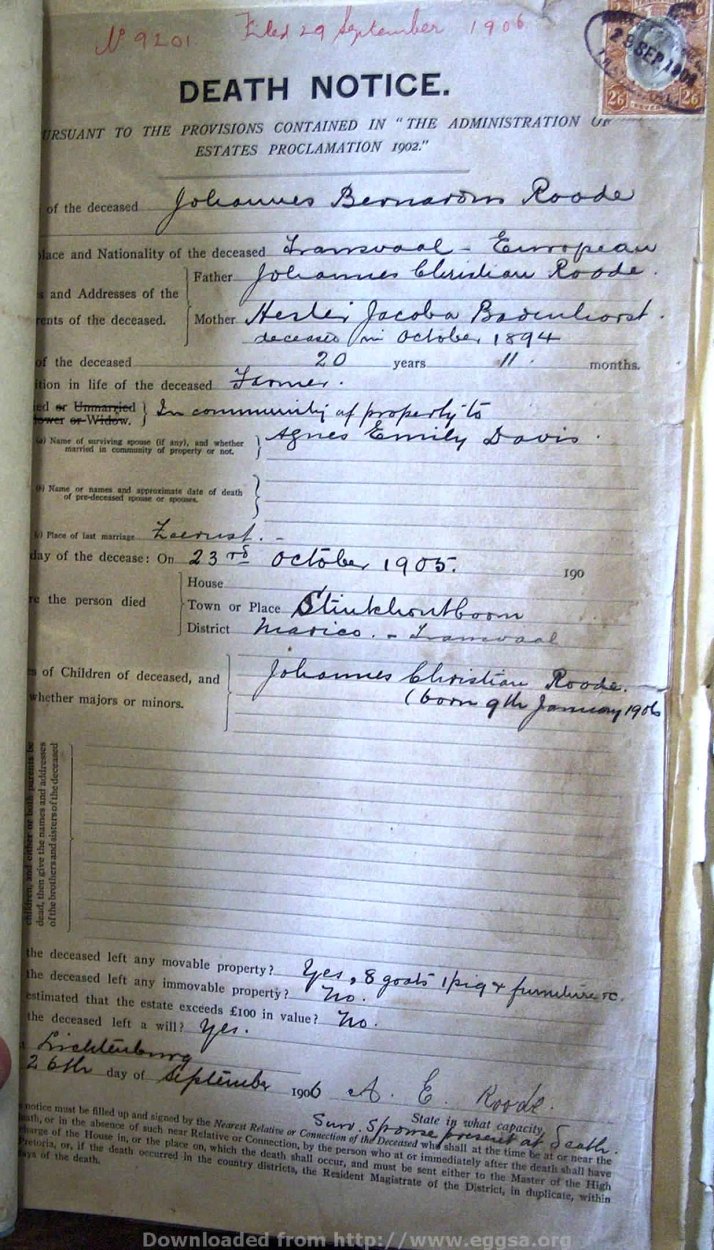 No 9201 Filed 29 September 1906
DEATH NOTICE.
URSUANT TO THE PROVISIONS CONTAINED IN "THE ADMINISTRATION OF
ESTATES PROCLAMATION 1902."
of the deceased Johannes Bernardus Roode
lace and Nationality of the deceased Transvaal - European
s and Addresses of the
rents of the deceased.
Father Johannes Christian Roode.
Mother Hester Jacoba Badenhorst.
deceased in October 1894
of the deceased 20 years 11. months.
tion in life of the deceased Farmer.
ed or Unmarried
ower or Widow.
In community of property to
(a) Name of surviving spouse (if any), and whether
married in community of property or not.
Agnes Emily Davis.
(b) Name or names and approximate date of death
of pre-deceased spouse or spouses.
(c) Place of last marriage Zeerust. -
day of the decease: On 23rd October 1905. 190
re the person died
House
Town or Place Stinkhoutboom
District Marico. - Transvaal
s of Children of deceased, and
whether majors or minors.
Johannes Christian Roode.
(born 9th January 1906
children, and either or both parents be
dead, then give the names and addresses
of the brothers and sisters of the deceased
the deceased left any movable property? Yes, 8 goats 1 pig & furniture &c.
the deceased left any immovable property? No.
estimated that the estate exceeds £100 in value? No.
the deceased left a will? Yes.
Lichtenburg
26th day of September 1906 A. E. Roode.
State in what capacity
Surv. Spouse present at Death.
notice must be filled up and signed by the Nearest Relative or Connection of the Deceased who shall at the time be at or near the
eath, or in the absence of such near Relative or Connection, by the person who at or immediately after the death shall have
harge of the House in, or the place on, which the death shall occur, and must be sent either to the Master of the High
Pretoria, or, if the death occurred in the country districts, the Resident Magistrate of the District, in duplicate, within
ays of the death.
26 26
Downloaded from http://www.eggsa.org